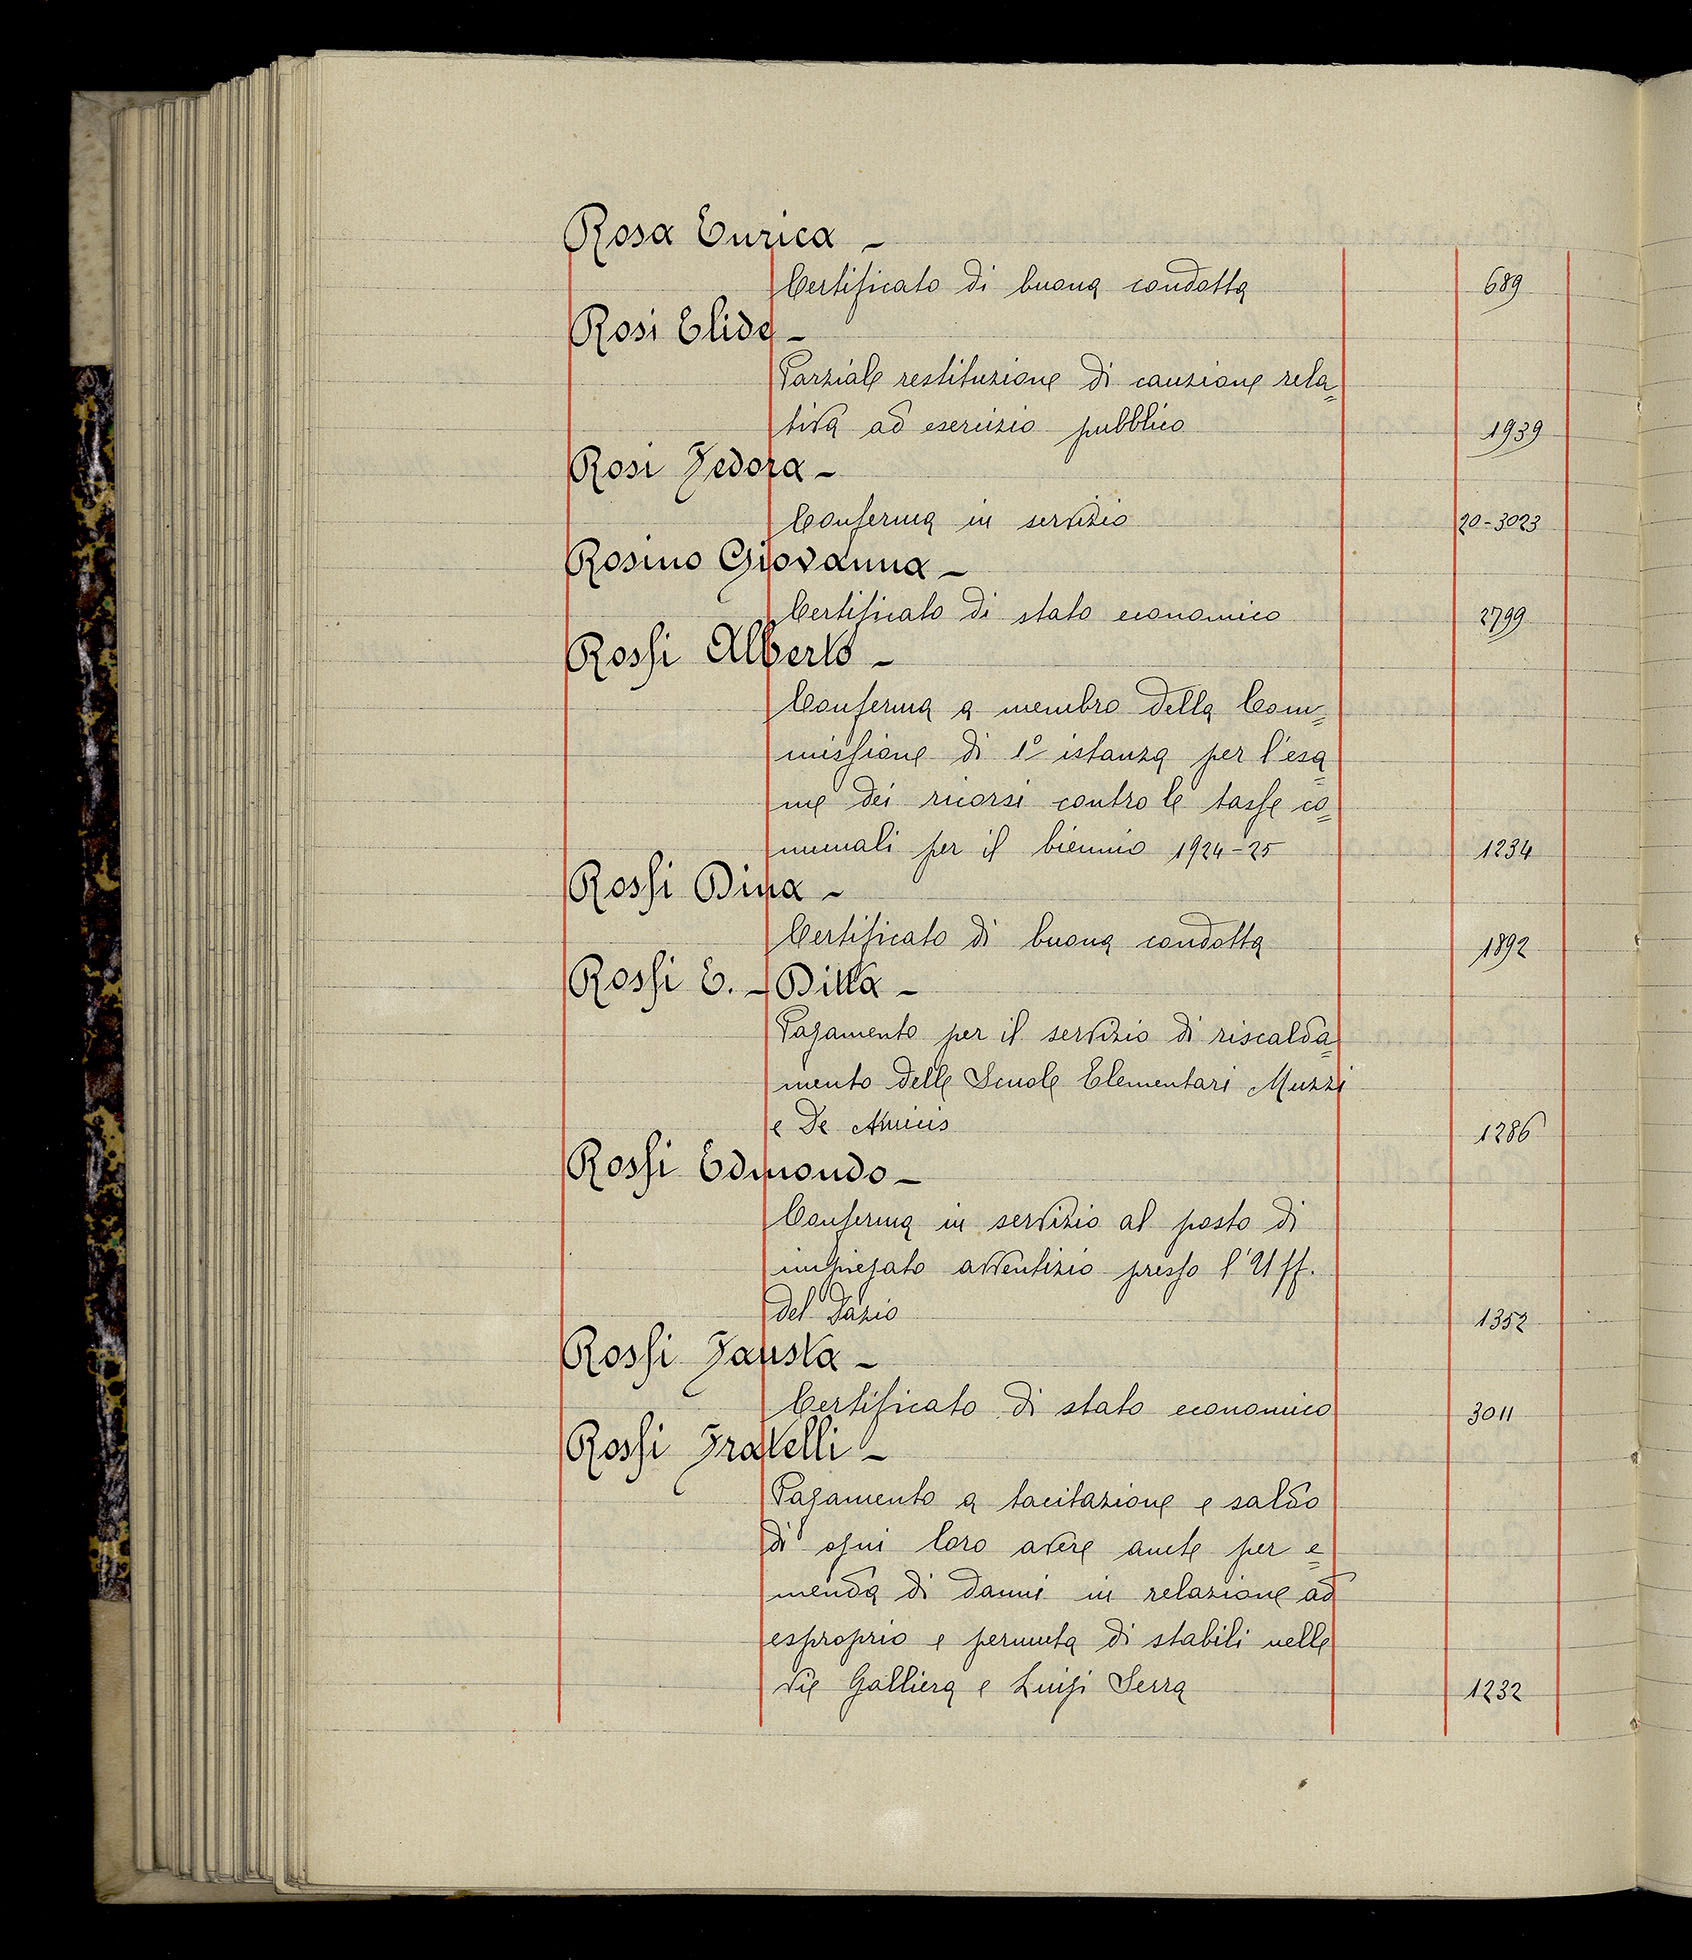 Rosa Enrica -
Certificato di buona condotta 689
Rosi Elide -
Parziale restituzione di cauzione rela=
tiva ad esercizio pubblico 1939
Rosi Fedora -
Conferma in servizio 20-3023
Rosino Giovanna -
Certificato di stato economico 2799
Rossi Alberto -
Conferma a membro della Com=
missione di 1° istanza per l'esa
me dei ricorsi contro le tasse co=
munali per il biennio 1924-25 1234
Rossi Dina -
Certificato di buona condotta 1892
Rossi E. - Ditta -
Pagamento per il servizio di riscalda=
mento delle Scuole Elementari Muzzi
e De Amicis 1286
Rossi Edmondo -
Conferma in servizio al posto di
impiegato avventizio presso l'Uff.
del Dazio 1352
Rossi Fausta -
Certificato di stato economico 3011
Rossi Fratelli -
Pagamento a tacitazione e saldo
di ogni loro avere anche per e=
menda di danni in relazione ad
esproprio e permuta di stabili nelle
vie Galliera e Luigi Serra 1232